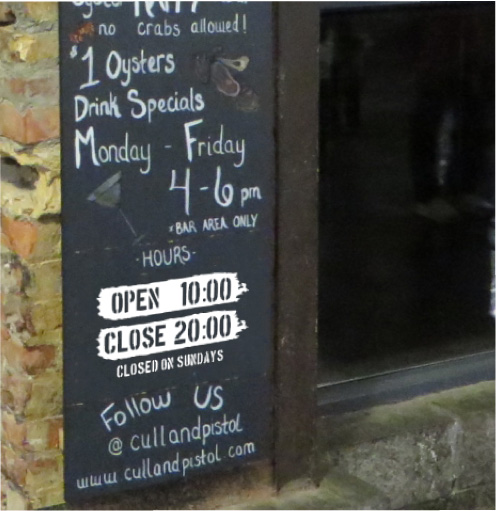 no crabs allowed!
$1 Oysters
Drink Specials
Monday - Friday
4-6 pm
*BAR AREA ONLY
-HOURS-
OPEN 10:00
CLOSE 20:00
CLOSED ON SUNDAYS
Follow US
@cullandpistol
www.cullandpistol.com